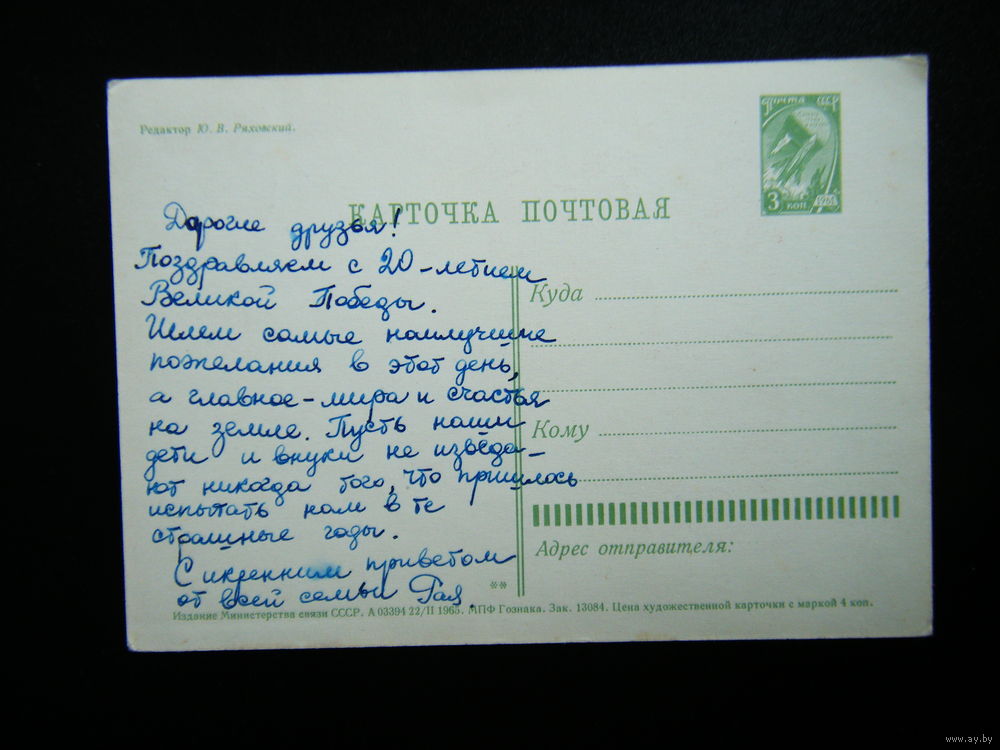 Редактор Ю. В. Ряховский.
ПОЧТА СССР
3 КОП. 1961
КАРТОЧКА ПОЧТОВАЯ
Дорогие друзья!
Поздравляем с 20-летием
Великой Победы.
Шлем самые наилучшие
пожелания в этот день,
а главное - мира и счастья
на земле. Пусть наши
дети и внуки не изведа-
ют никогда того, что пришлось
испытать нам в те
страшные годы.
С искренним приветом
от всей семьи Рая.
Куда
Кому
Адрес отправителя:
**
Издание Министерства связи СССР. А 03394 22/II 1965. МПФ Гознака. Зак. 13084. Цена художественной карточки с маркой 4 коп.
www.ay.by